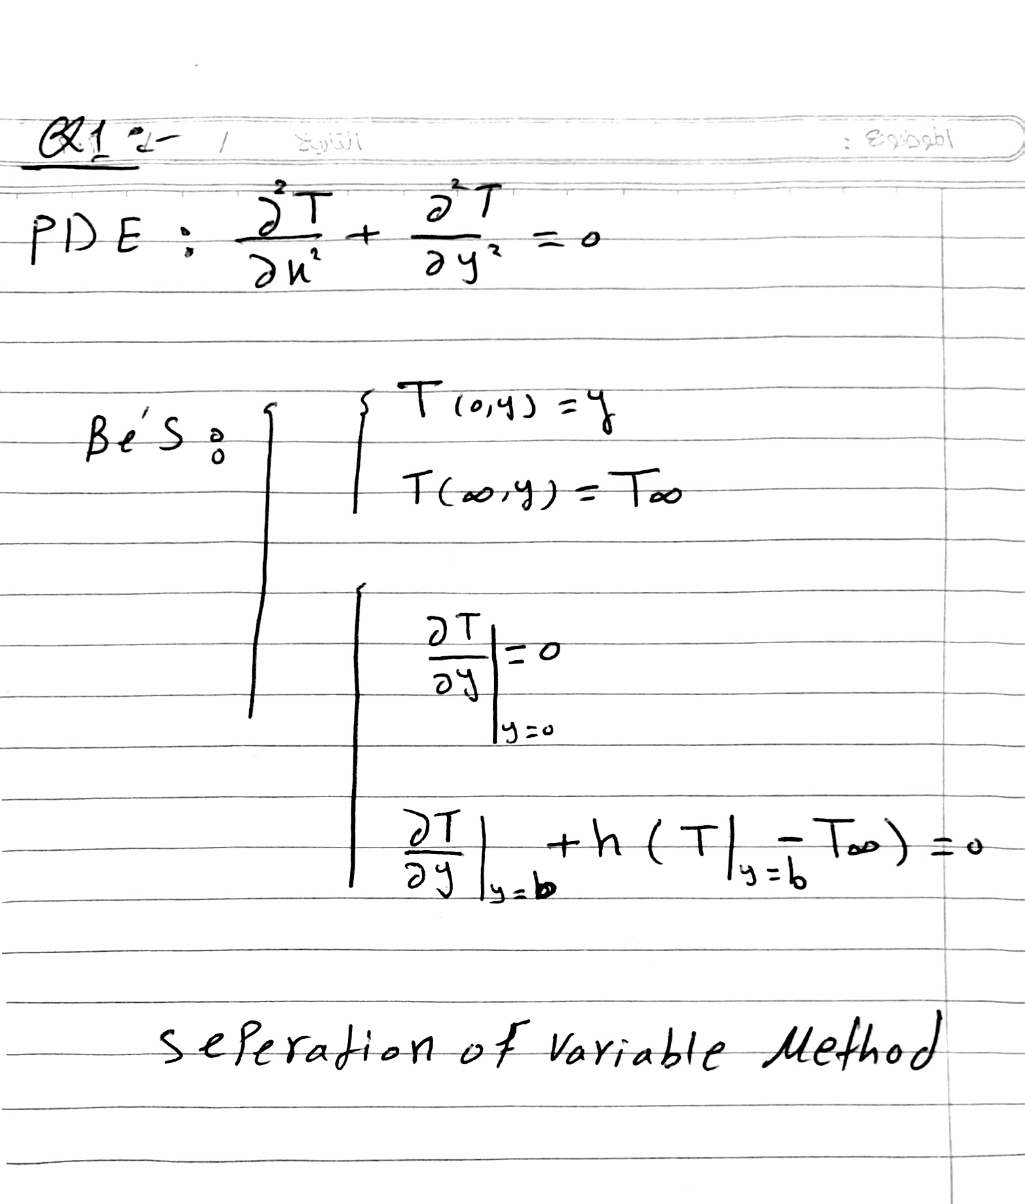 Q1 :-
الموضوع : التاريخ /
PDE : ∂²T/∂x² + ∂²T/∂y² = 0
Bc'S : T(0,y) = y
T(∞,y) = T∞
∂T/∂y |y=0 = 0
∂T/∂y |y=b + h (T|y=b - T∞) = 0
sePeration of Variable Method